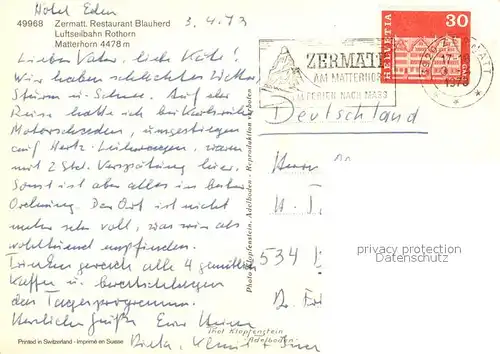 Hotel Eden
3.4.73
49968 Zermatt. Restaurant Blauherd
Luftseilbahn Rothorn
Matterhorn 4478 m
Lieber Vater, liebe Käte!
Wir haben schlechtes Wetter,
Sturm u. Schnee. Auf der
Reise hatte ich bei Karlsruhe
Motorschaden, umgestiegen
auf Hertz-Leihwagen, waren
mit 2 Std. Verspätung hier.
Sonst ist aber alles in bester
Ordnung. Der Ort ist nicht
mehr sehr voll, was wir als
wohltuend empfinden.
Trinken gerade alle 4 gemütlich
Kaffee u. beratschlagen
das Tagesprogramm.
Herzliche Grüße Euer
Printed in Switzerland - Imprimé en Suisse
Photo Klopfenstein, Adelboden - Reproduktion verboten
HELVETIA 30
ZERMATT
AM MATTERHORN
FERIEN NACH MASS
3920 ZERMATT
1973
Deutschland
Herrn
534
privat copyright
Personalisation
Thel Klopfenstein
Adelboden